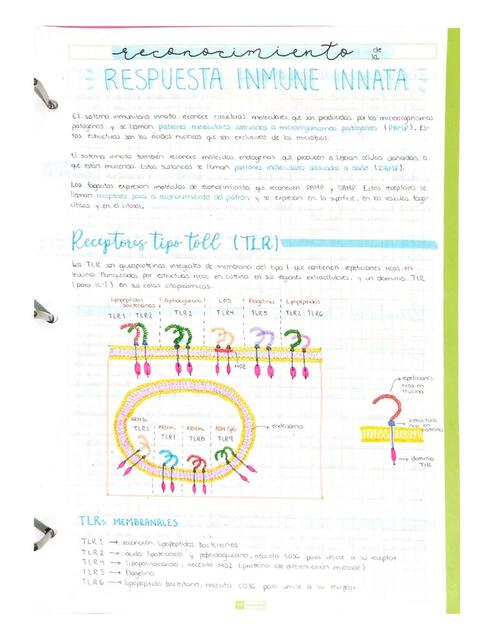 reconocimiento de la
RESPUESTA INMUNE INNATA
El sistema inmunitario innato reconoce estructuras moleculares que son producidas por los microorganismos
patógenos y se llaman patrones moleculares asociados a microorganismos patógenos (PAMP). Es-
tas estructuras son los ácidos nucleicos que son exclusivos de los microbios.
El sistema innato también reconoce moléculas endógenas que producen o liberan células dañadas o
que están muriendo. Estas sustancias se llaman patrones moleculares asociados a daño (DAMP).
Los fagocitos expresan moléculas de reconocimiento que reconocen PAMP y DAMP. Estos receptores se
llaman receptores para el reconocimiento del patrón y se expresan en la superficie, en las vesículas fago-
cíticas y en el citosol.
Receptores tipo toll (TLR)
Los TLR son glucoproteínas integrales de membrana del tipo I que contienen repeticiones ricas en
leucina flanqueadas por estructuras ricas en cisteína en sus regiones extracelulares, y un dominio TIR
(para IL-1) en sus colas citoplásmicas.
lipopéptidos bacterianos
Peptidoglucano
LPS
Flagelina
Lipopéptidos
TLR1 TLR2
TLR2
TLR4
TLR5
TLR2 TLR6
MD2
TLR3
TLR7
TLR8
ADN CpG
TLR9
endosoma
repeticiones
ricas en
leucina
estructura
rica en
cisteína
dominio
TIR
TLRs MEMBRANALES
TLR1 → reconoce lipopéptidos bacterianos
TLR2 → ácido lipoteicoico y peptidoglucano, necesita CD36 para unirse a su receptor
TLR4 → lipopolisacárido, necesita MD2 (proteína de diferenciación mieloide)
TLR5 → flagelina
TLR6 → lipopéptido bacteriano, necesita CD36 para unirse a su receptor